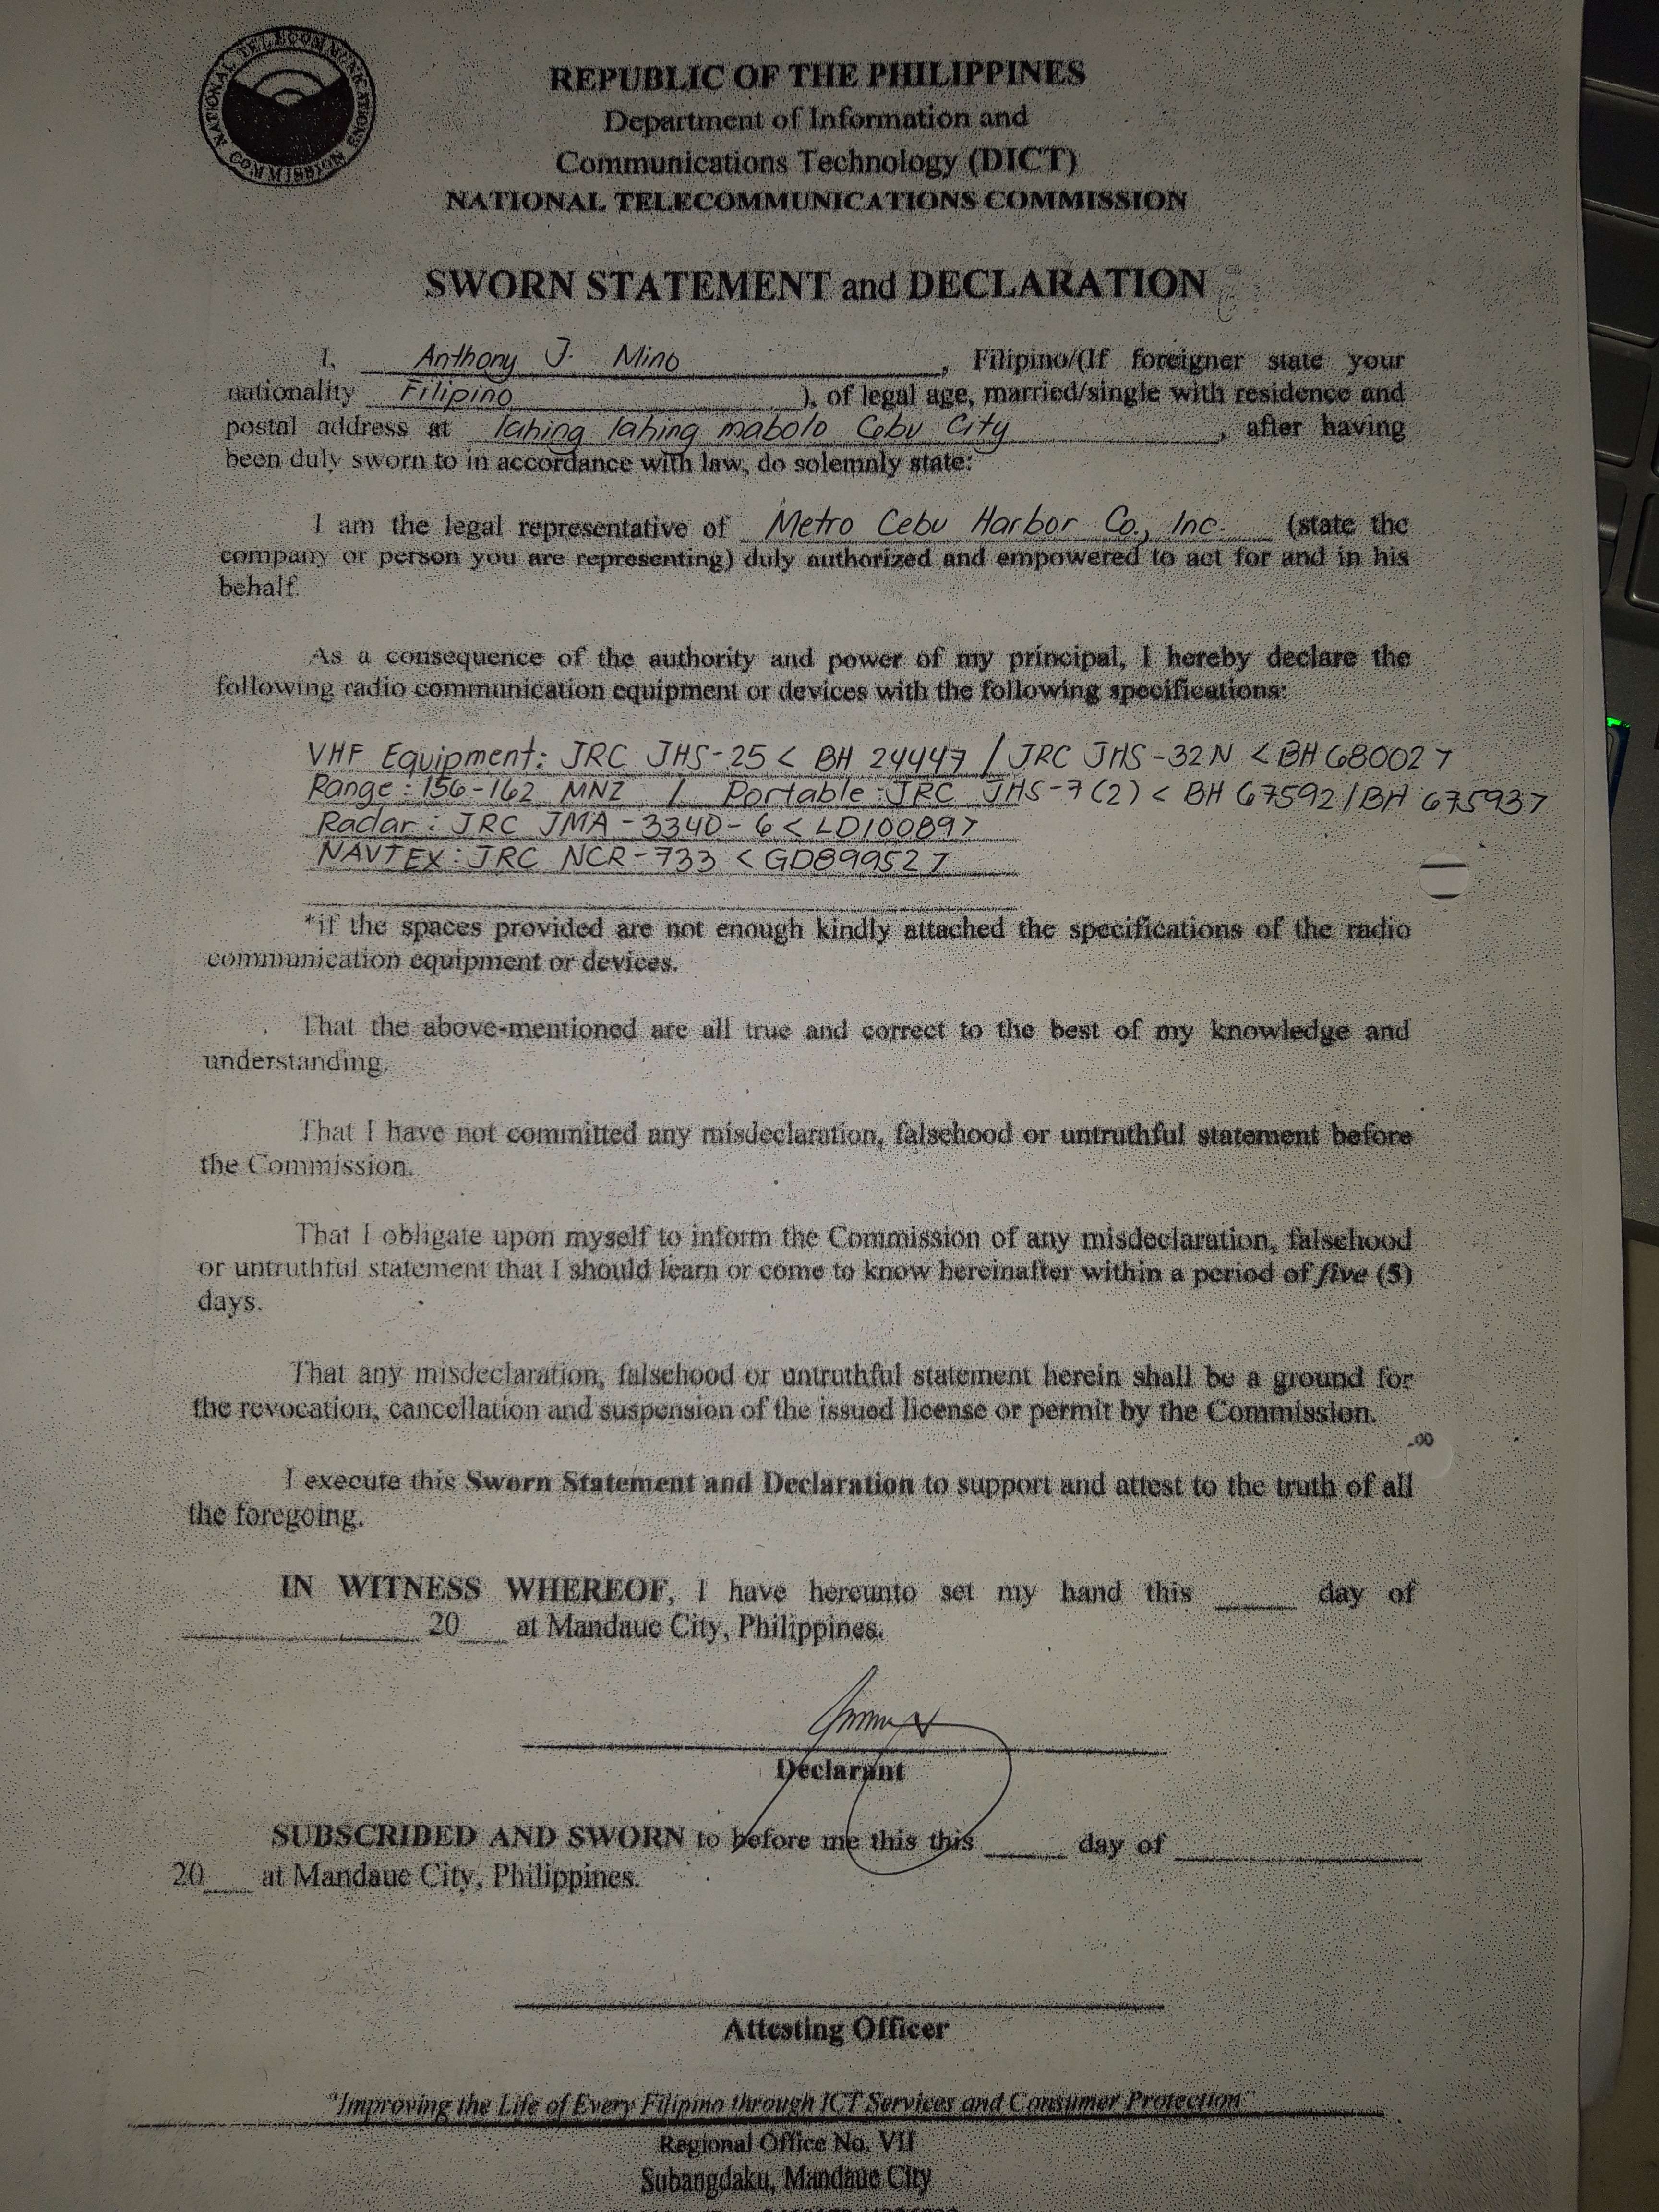 NATIONAL TELECOMMUNICATIONS COMMISSION
REPUBLIC OF THE PHILIPPINES
Department of Information and
Communications Technology (DICT)
NATIONAL TELECOMMUNICATIONS COMMISSION
SWORN STATEMENT and DECLARATION
I, Anthony J. Mino, Filipino/(If foreigner state your
nationality Filipino), of legal age, married/single with residence and
postal address at Tahing Tahing mabolo Cebu City, after having
been duly sworn to in accordance with law, do solemnly state:
I am the legal representative of Metro Cebu Harbor Co., Inc. (state the
company or person you are representing) duly authorized and empowered to act for and in his
behalf.
As a consequence of the authority and power of my principal, I hereby declare the
following radio communication equipment or devices with the following specifications:
VHF Equipment: JRC JHS-25 < BH 24447 / JRC JHS-32N < BH 68002 >
Range: 156-162 MNZ / Portable: JRC JHS-7 (2) < BH 67592 / BH 67593 >
Radar: JRC JMA-3340-6 < LD10089 >
NAVTEX: JRC NCR-733 < GD89952 >
*if the spaces provided are not enough kindly attached the specifications of the radio
communication equipment or devices.
That the above-mentioned are all true and correct to the best of my knowledge and
understanding.
That I have not committed any misdeclaration, falsehood or untruthful statement before
the Commission.
That I obligate upon myself to inform the Commission of any misdeclaration, falsehood
or untruthful statement that I should learn or come to know hereinafter within a period of five (5)
days.
That any misdeclaration, falsehood or untruthful statement herein shall be a ground for
the revocation, cancellation and suspension of the issued license or permit by the Commission.
.00
I execute this Sworn Statement and Declaration to support and attest to the truth of all
the foregoing.
IN WITNESS WHEREOF, I have hereunto set my hand this ____ day of
____ 20__ at Mandaue City, Philippines.
Declarant
SUBSCRIBED AND SWORN to before me this this ____ day of ____
20__ at Mandaue City, Philippines.
Attesting Officer
"Improving the Life of Every Filipino through ICT Services and Consumer Protection"
Regional Office No. VII
Subangdaku, Mandaue City